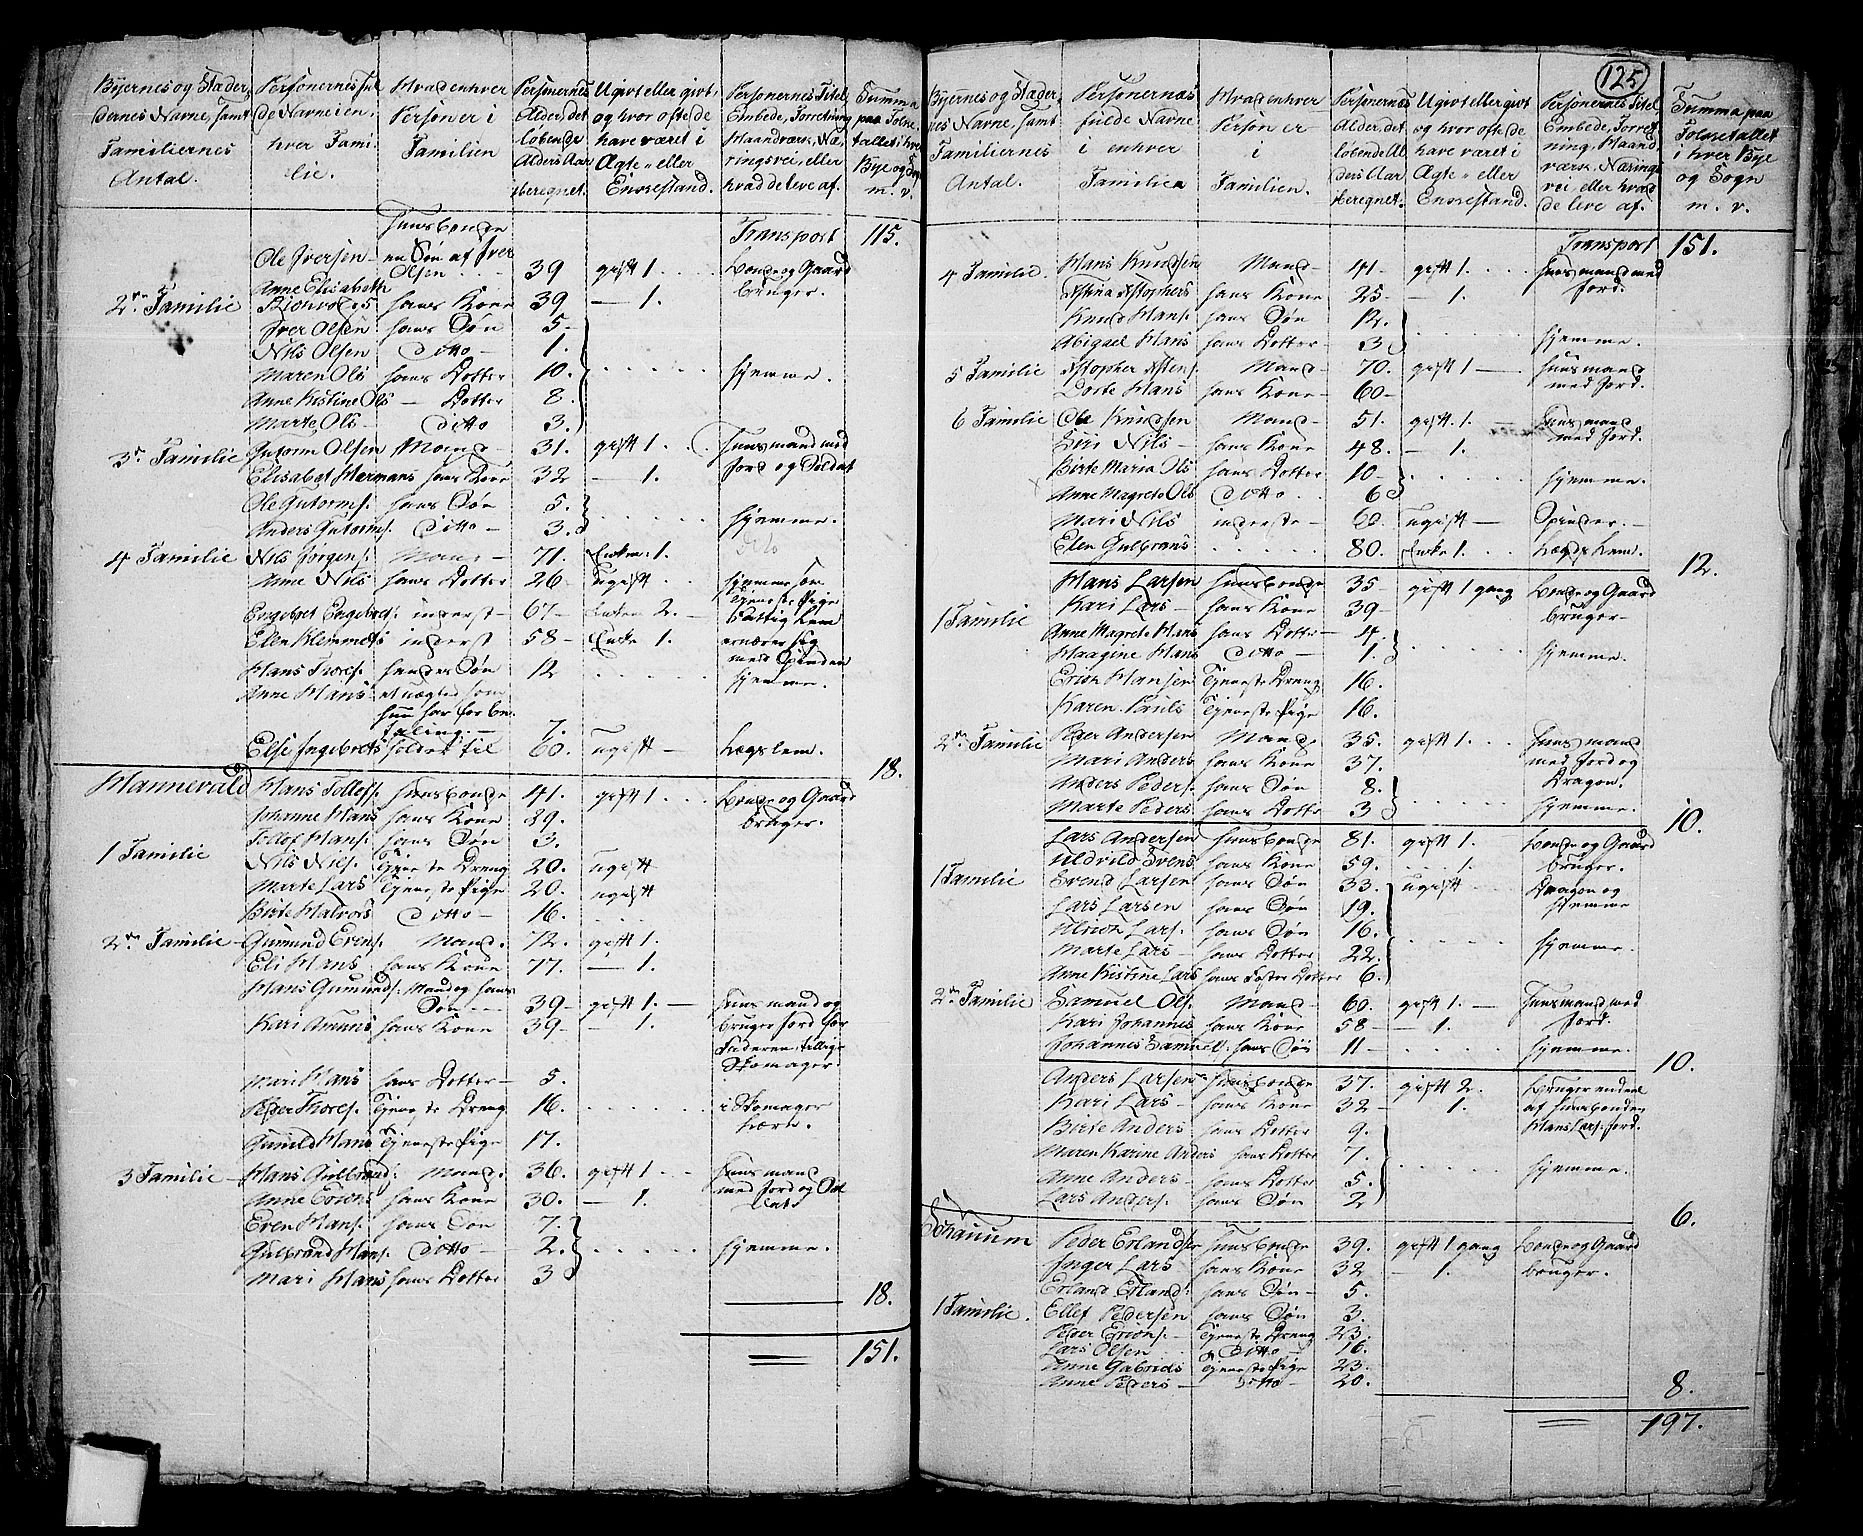 Byernes og Stæder,
dernes Navne, samt
Familiernes
Antal.
Personernes ful
de Navne i en,
hver Fami-
lie.
Hvad enhver
Person er i
Familien
Personernes
Alder, det
løbende
Alders Aar
iberegnet.
Ugivt eller givt,
og hvor ofte de
have været i
Ægte- eller
Enkestand.
Personernes Titel,
Embede, Forretning
Haandværk, Næ-
ringsvei, eller
hvad de leve af.
Summa
paa Folke
tallet i hver
Bye og Sogn
m. v.
Transport 115.
Huusbonde
Ole Iversen en Søn af Iver Olsen 39 gift 1. Bonde og Gaard
bruger.
2den Familie Anne Elisabeth
hans Kone 39 — 1.
Iver Olsen hans Søn 5
Nils Olsen ditto 1.
Maren Ols hans Dotter 10. hjemme.
Anne Kistine Ols — Dotter 8.
Marte Ols ditto 3.
3die Familie Gutorm Olsen Mand 31. gift 1. Huusmand med
Jord og Soldat
Elisabet Hermans hans Kone 32 — 1.
Ole Gutorms. hans Søn 5.
Anders Gutorms. ditto 3. hjemme.
4 Familie Nils Jorgens. Mand 71. Enkem. 1.
Anne Nils hans Dotter 26 ugift hjemme for
Tjeneste Pige
Engebret Engebrets. inderst 67 Enkem 2. Fattig Lem
Ellen Klemmets inderst 58 Enke 1. ernærer sig
med Spinden
Hans Thores. hendes Søn 12 hjemme.
Anne Hans et som
hun har for be-
taling. 7.
Else Ingebrets til 60. ugift Lægslem.
18.
Mannevald Hans Tollefs. Huusbonde 41. gift 1. Bonde og Gaard
bruger.
Johanne Hans hans Kone 29.
1 Familie Tollef Hans. hans Søn 3.
Nils Nils. Tjeneste Dreng 20. ugift
Marte Lars Tjeneste Pige 20. ugift
Birte Halvors ditto 16.
2den Familie Gumund Evens. Mand. 72. gift 1.
Eli Hans hans Kone 77. — 1.
Hans Gumunds. Mand og hans
Søn 39 gift 1. Huusmand og
bruger Jord for
Faderen, tillige
Skomager.
Kari Amuns hans Kone 39 — 1.
Mari Hans hans Dotter 5.
Peder Thores. Tjeneste Dreng 16. i Skomager
Lære.
Gunild Hans Tjeneste Pige 17.
3 Familie Hans Gulbrand. Mand. 36. gift 1. Huusmand
med Jord og Sol
dat
Anne Erichs hans Kone 30. — 1.
Even Hans. hans Søn 7.
Gulbrand Hans. ditto 2. hjemme.
Mari Hans hans Dotter 3
18.
151.
125
Byernes og Stæder,
nes Navne, samt
Familiernes
Antal.
Personernes
fulde Navne
i enhver
Familie
Hvad enhver
Person er
i
Familien.
Personernes
Alder, det
løbende Al
ders Aar
iberegnet.
Ugivt eller givt
og hvor ofte de
have været i
Ægte- eller
Enkestand.
Personernes Titel
Embede, Forret
ning, Haand
værk, Nærings
vei eller hvad
de leve af.
Summa paa
Folketallet
i hver Bye
og Sogn
m. v.
Transport 151.
4 Familie. Hans Knudsen Mand 41. gift 1. Huusmand med
Jord.
Kistina Kistophers hans Kone 25 — 1.
Knud Hans. hans Søn 12.
Abigael Hans hans Dotter 3 hjemme.
5 Familie Kistopher Kistens. Mand 70. gift 1 Huusmand
med Jord.
Dorte Hans hans Kone 60
6 Familie Ole Knudsen Mand 51. gift 1. Huusmand
med Jord.
Siri Nils hans Kone 48. — 1.
Birte Maria Ols hans Dotter 10
Anne Magrete Ols ditto 6 hjemme.
Mari Nils inderste 60. ugift Spinder.
Elen Gulbrans 80. Enke 1. Lægds Lem.
12.
Hans Larsen Huusbonde 35 gift 1 gang Bonde og Gaard
bruger
1 Familie Kari Lars hans Kone 39
Anne Magrete Hans hans Dotter 4.
Maagine Hans ditto 1. hjemme.
Erich Hansen Tjeneste Dreng 16.
Karen Pauls Tjeneste Pige 16.
2den Familie Peder Andersen Mand 35. gift 1. Huusmand
med Jord og
Dragon.
Mari Anders hans Kone 37.
Anders Peders. hans Søn 8.
Marte Peders hans Dotter 3 hjemme.
10.
Lars Andersen Huusbonde 81. gift 1. Bonde og Gaard
bruger.
Uldrild Svens hans Kone 59. 1.
1 Familie Evend Larsen hans Søn 33. ugift Dragon og
hjemme
Lars Larsen hans Søn 19.
Ulrich Lars. hans Søn 16.
Marte Lars hans Dotter 22. hjemme.
Anne Kistine Lars hans Foster Dotter 6.
2den Familie Samuel Ols. Mand 60. gift 1. Huusmand med
Jord.
Kari Johannes hans Kone 58 — 1.
Johannes Samuel. hans Søn 11 hjemme.
10.
Anders Larsen Huusbonde 37. gift 2. bruger en deel
af Huusbonden
Hans Lars. Jord.
Kari Lars hans Kone 32 1.
Birte Anders hans Dotter 9.
Maren Karine Anders hans Dotter 7.
Anne Anders hans Dotter 5. hjemme.
Lars Anders. hans Søn 2
6.
Schauum Peder Erlands. Huusbonde 39. gift 1 gang Bonde og Gaard
bruger.
Inger Lars hans Kone 32 — 1.
Erland Erland. hans Søn 5.
1 Familie. Ellef Pedersen hans Søn 3.
Peder Erichs. Tjeneste Dreng 23.
Lars Olsen ditto 16.
Anne Gabriels Tjeneste Pige 23.
Anne Peders ditto 20.
8.
197.